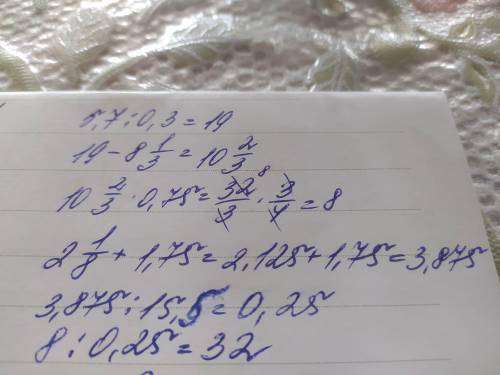 5,7:0,3=19
19-8 1/3=10 2/3
10 2/3·0,75=32/3·3/4=8
2 1/8+1,75=2,125+1,75=3,875
3,875:15,5=0,25
8:0,25=32